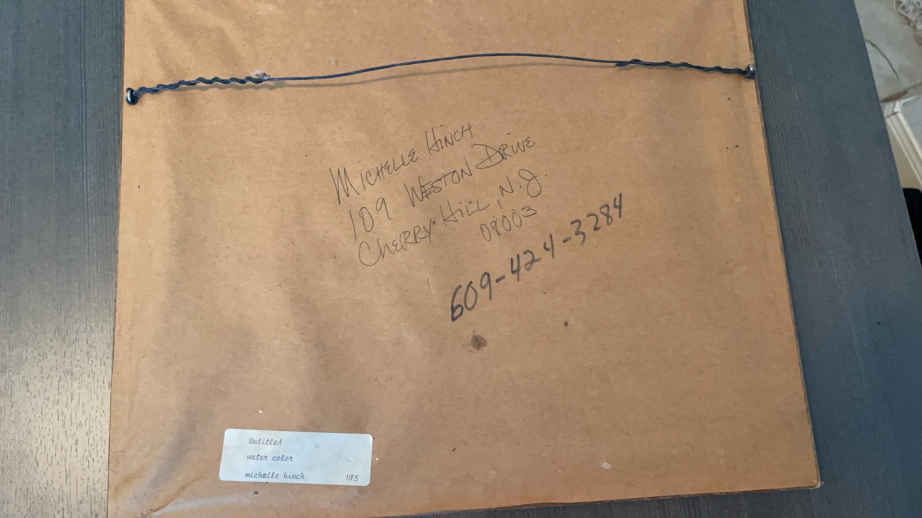 MICHELLE HINCH
109 WESTON DRIVE
CHERRY HILL, N.J.
08003
609-424-3284
Untitled
water color
michelle hinch 185